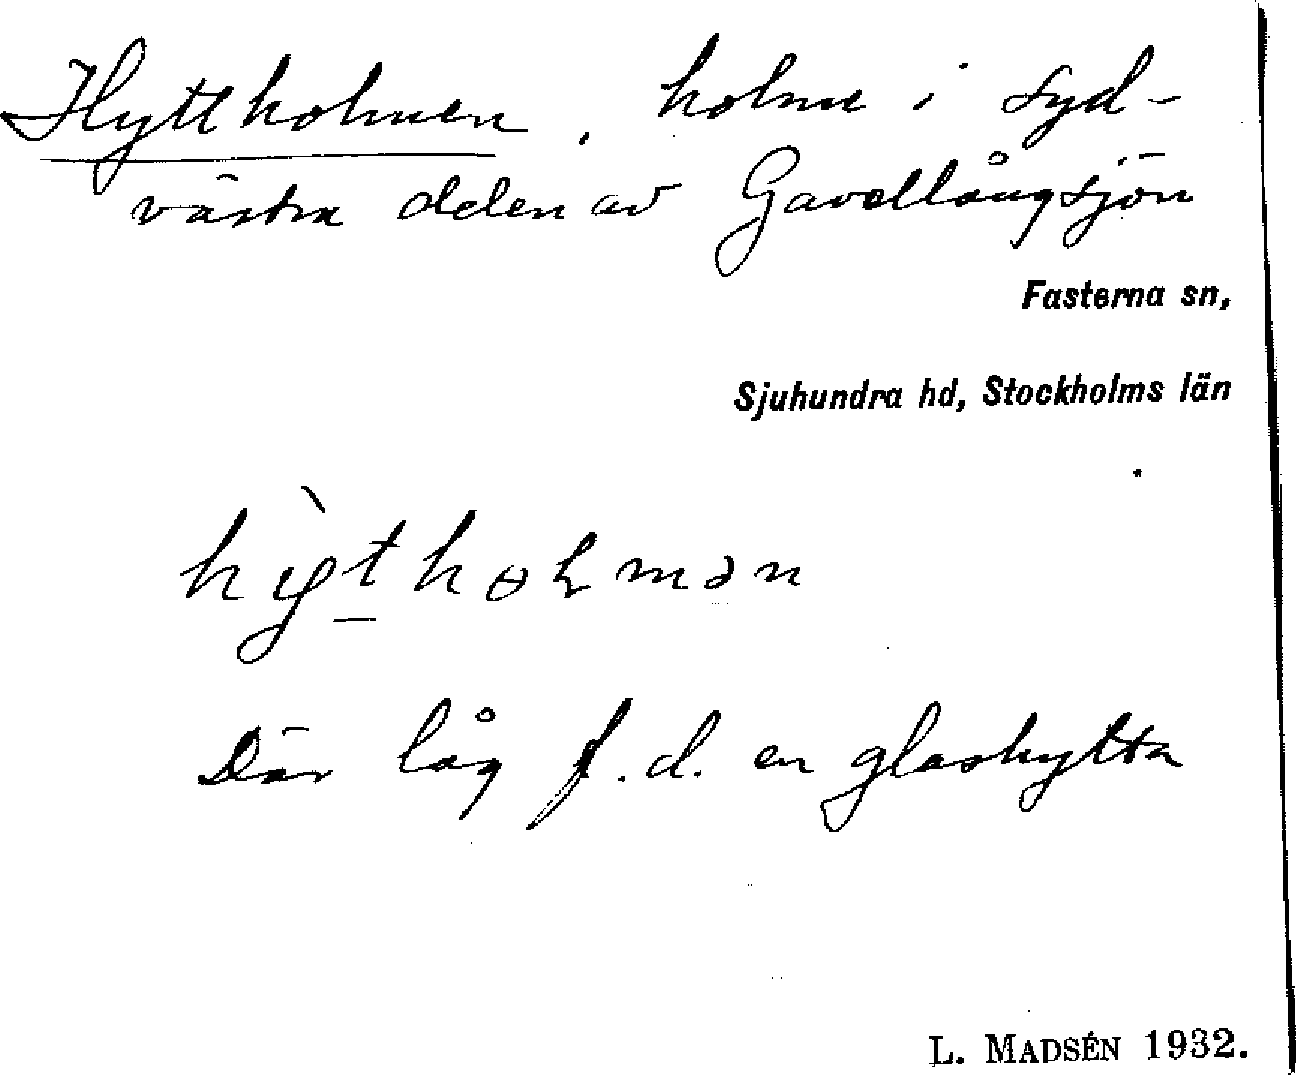 Hyttholmen, holme i syd-
västra delen av Gavellångsjön
Fasterna sn,
Sjuhundra hd, Stockholms län
hỳtholmən
Där låg f.d. en glashytta
L. MADSÉN 1932.